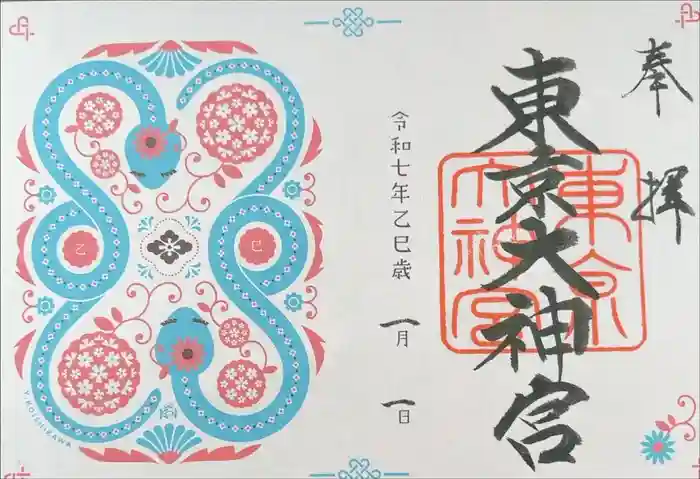 奉拝
東京大神宮
東京大神宮
令和七年乙巳歳 一月 一日
乙
巳
Y.KOISHIKAWA